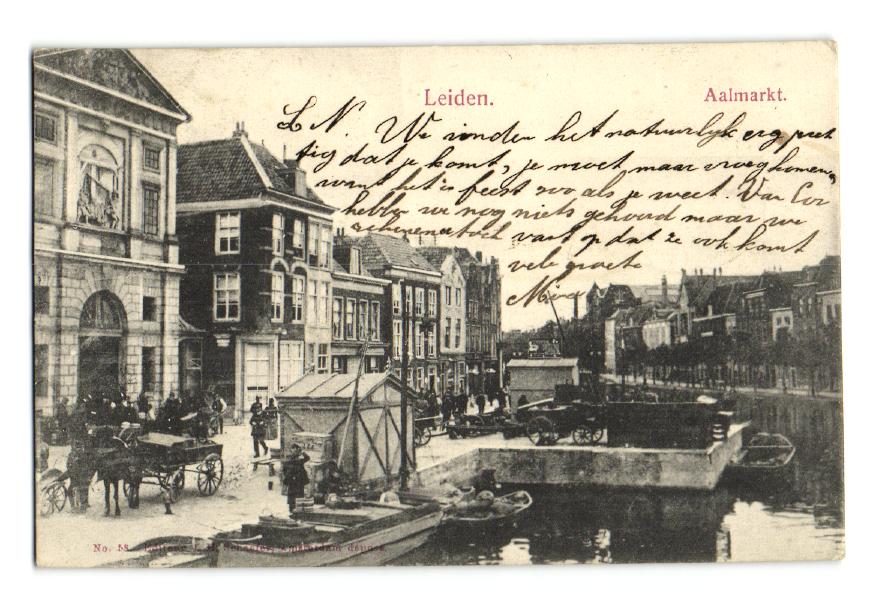 Leiden. Aalmarkt.
L N. We vinden het natuurlijk erg, pret
tig dat je komt, je moet maar vroeg komen,
want het is feest zoo als je weet. Van Cor
hebben we nog niets gehoord maar we
rekenen er toch vast op dat ze ook komt
vele groete
Mien
No. 58.